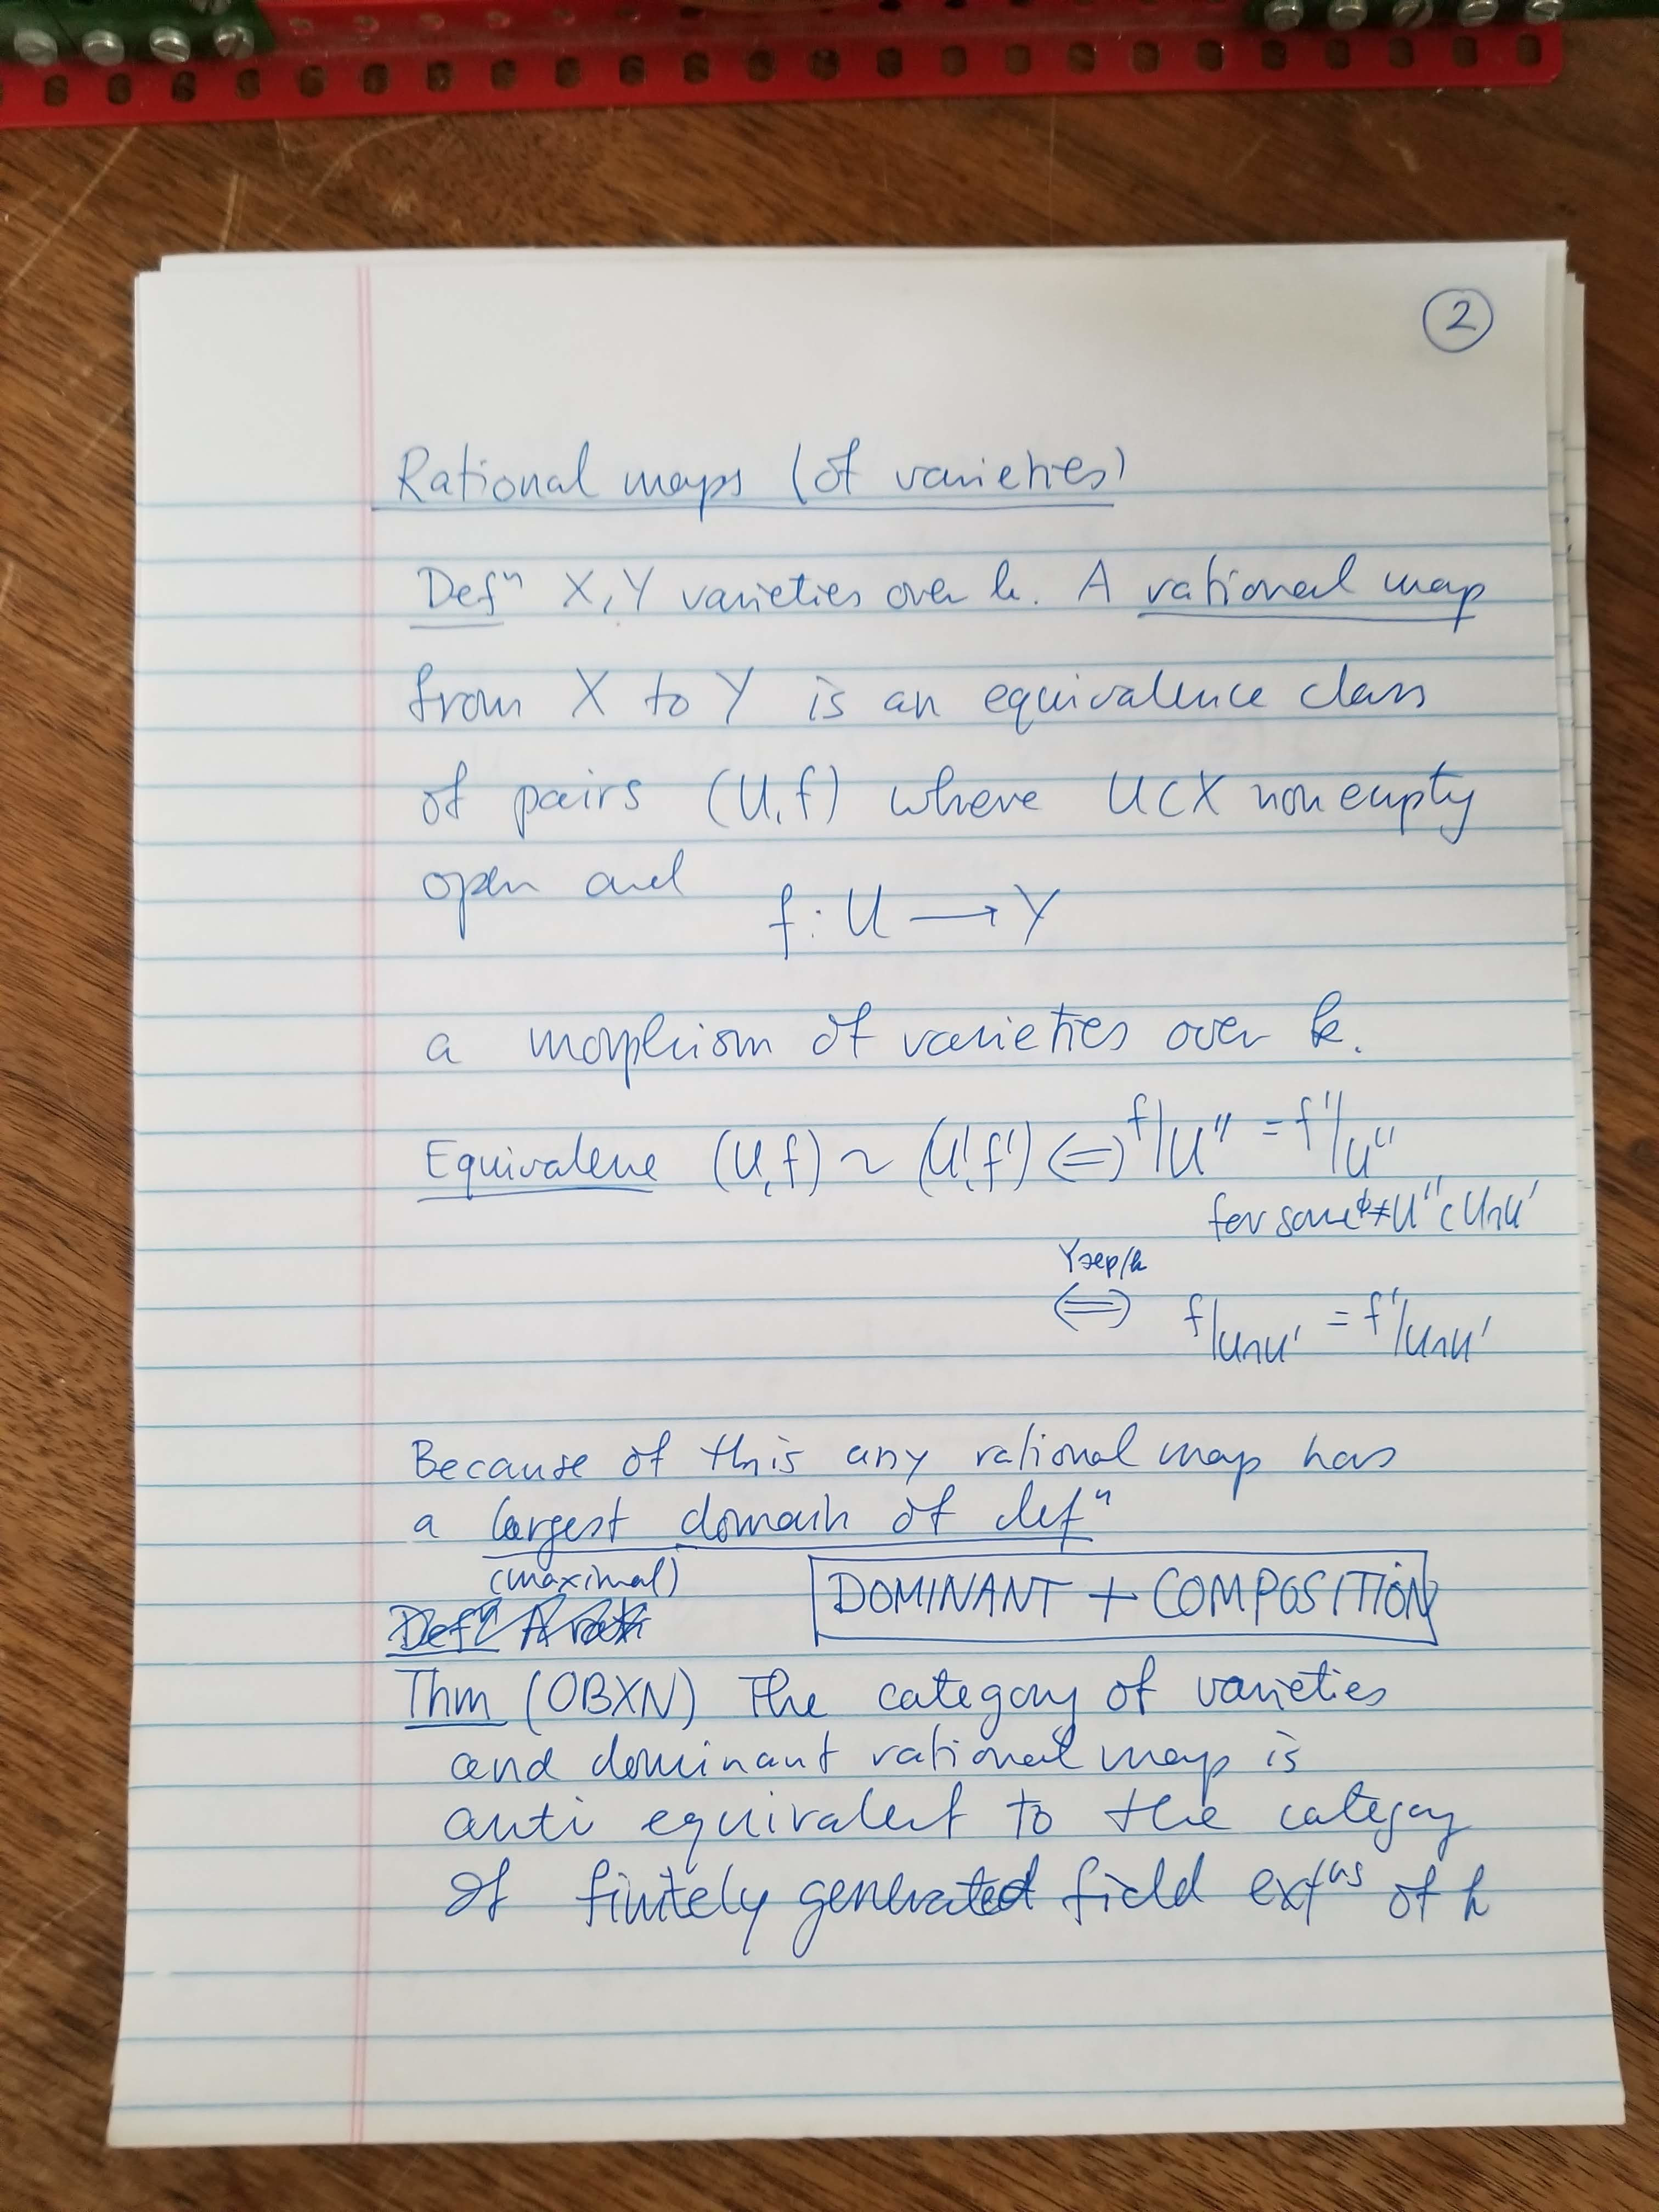 2
Rational maps (of varieties)
Defⁿ X, Y varieties over k. A rational map
from X to Y is an equivalence class
of pairs (U, f) where U ⊂ X nonempty
open and
f : U ⟶ Y
a morphism of varieties over k.
Equivalence (U, f) ~ (U', f') ⟺ f|U'' = f'|U''
for some ∅ ≠ U'' ⊂ U∩U'
Y sep/k
⟺ f|U∩U' = f'|U∩U'
Because of this any rational map has
a largest domain of defⁿ
(maximal)
DOMINANT + COMPOSITION
Defⁿ A rat
Thm (0BXN) The category of varieties
and dominant rational map is
anti equivalent to the category
of finitely generated field extⁿˢ of k